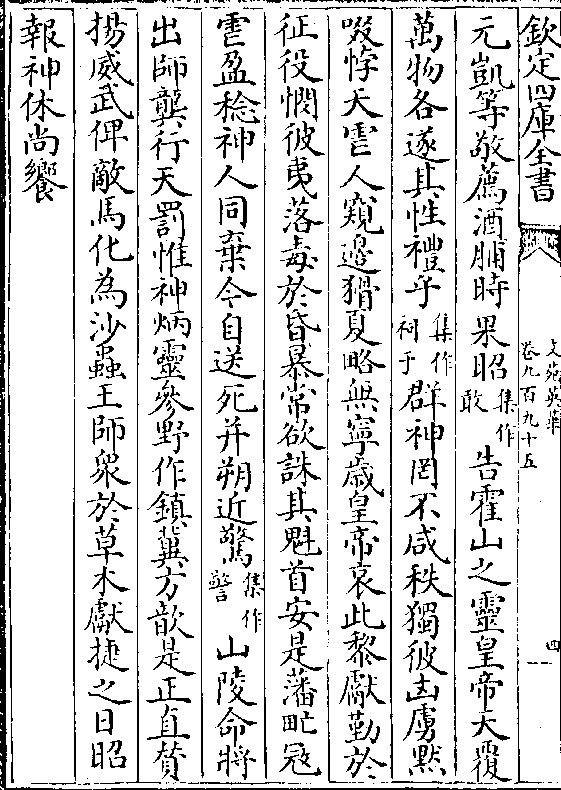 欽定四庫全書
文苑英華
卷九百九十五
四
元凱等敬薦酒脯時果昭集作敢告霍山之靈皇帝天覆
萬物各遂其性禮乎集作祠于群神罔不咸秩獨彼凶虜黙
啜悖天虐人窺邊猾夏略無寧歲皇帝哀此黎獻勤於
征役憫彼夷落毒於昏暴常欲誅其魁首安是藩甿冦
虐盈稔神人同棄今自送死并朔近驚集作警山陵命將
出師龔行天罰惟神炳靈參野作鎮冀方歆是正直贊
揚威武俾敵馬化為沙蟲王師衆於草木獻捷之日昭
報神休尚饗